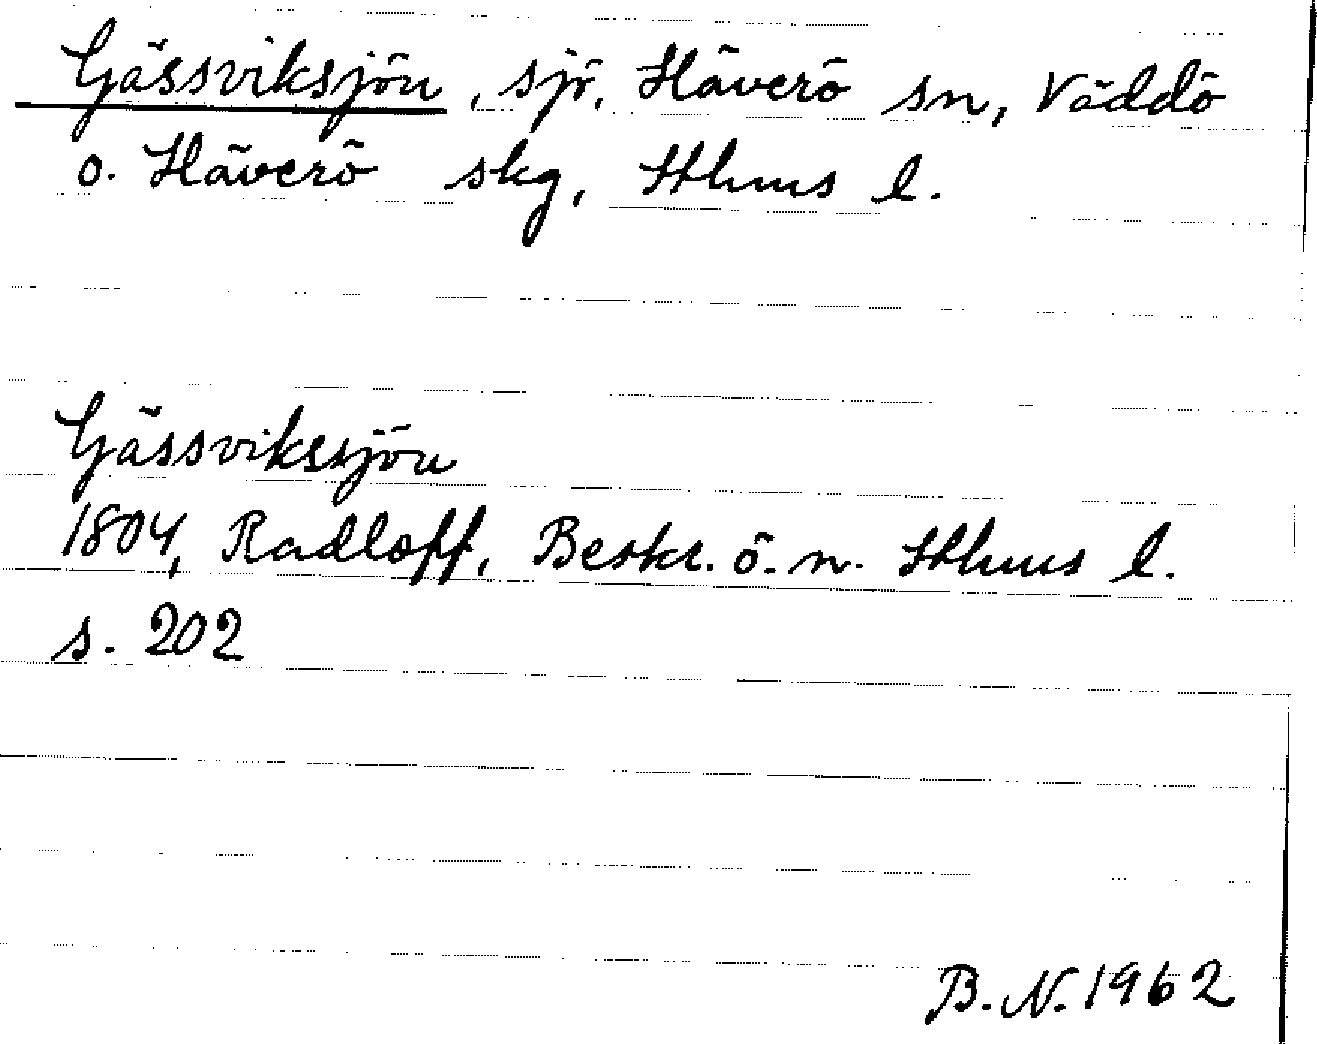 Gässviksjön, sjö, Häverö sn, Väddö
o. Häverö skg, Sthms l.
Gässvikssjön
1804, Radloff, Beskr. ö. n. Sthms l.
s. 202
B.N. 1962